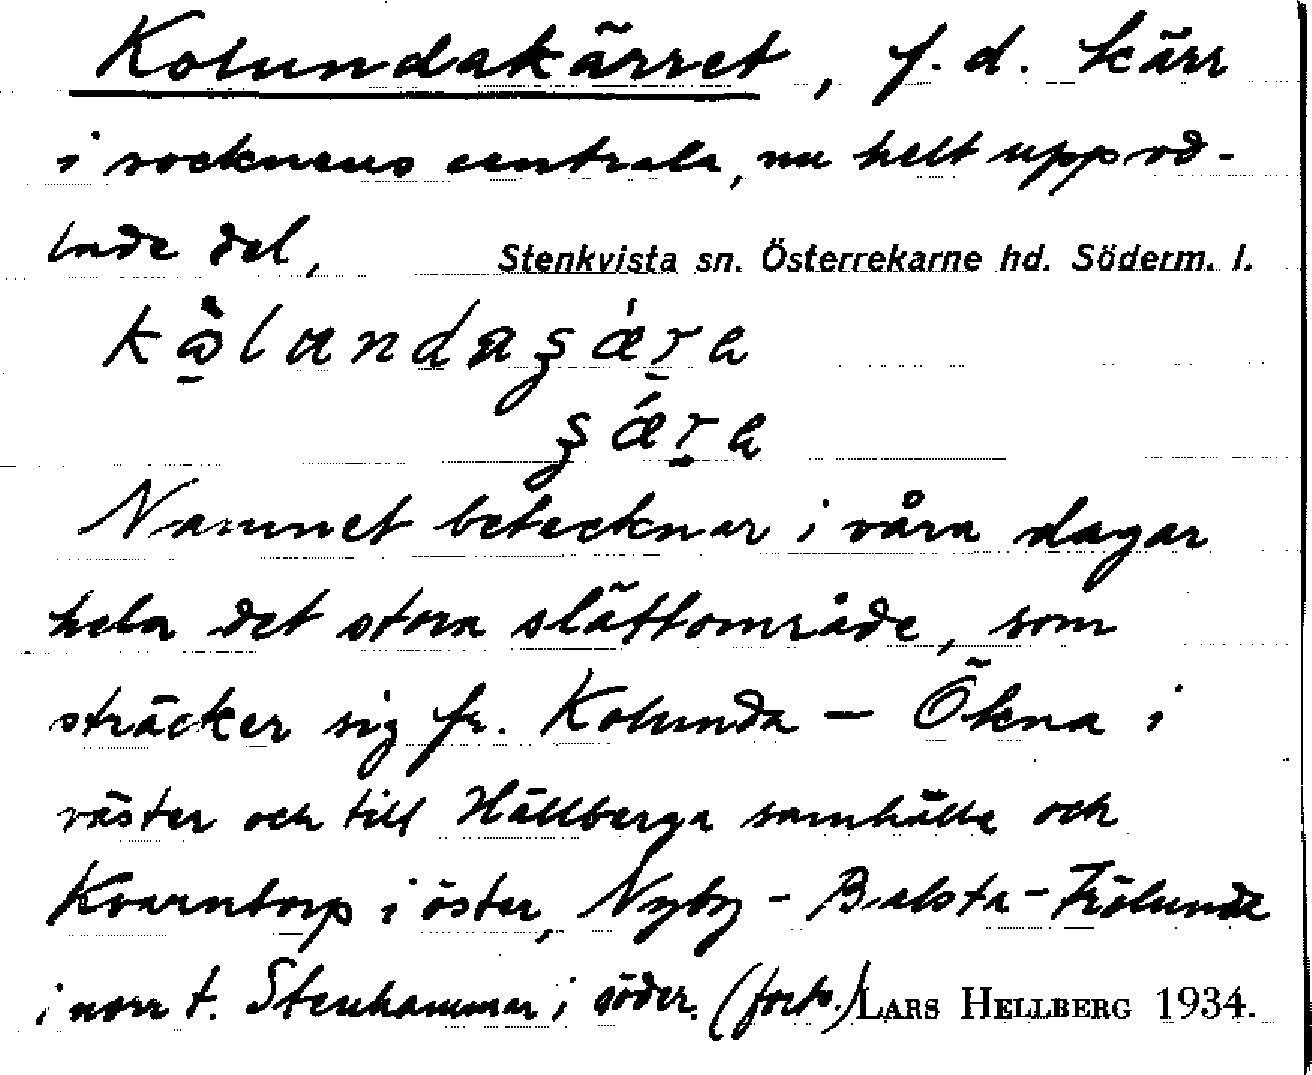 Kolundakärret, f.d. kärr
i socknens centrala, nu helt uppod-
lade del,
Stenkvista sn. Österrekarne hd. Söderm. l.
Namnet betecknar i våra dagar
hela det stora slättområde, som
sträcker sig fr. Kolunda – Ökna i
väster och till Hällberga samhälle och
Kvarntorp i öster, Nyby - Balsta - Frölunda
i norr t. Stenhammar i söder. (forts.)
LARS HELLBERG 1934.